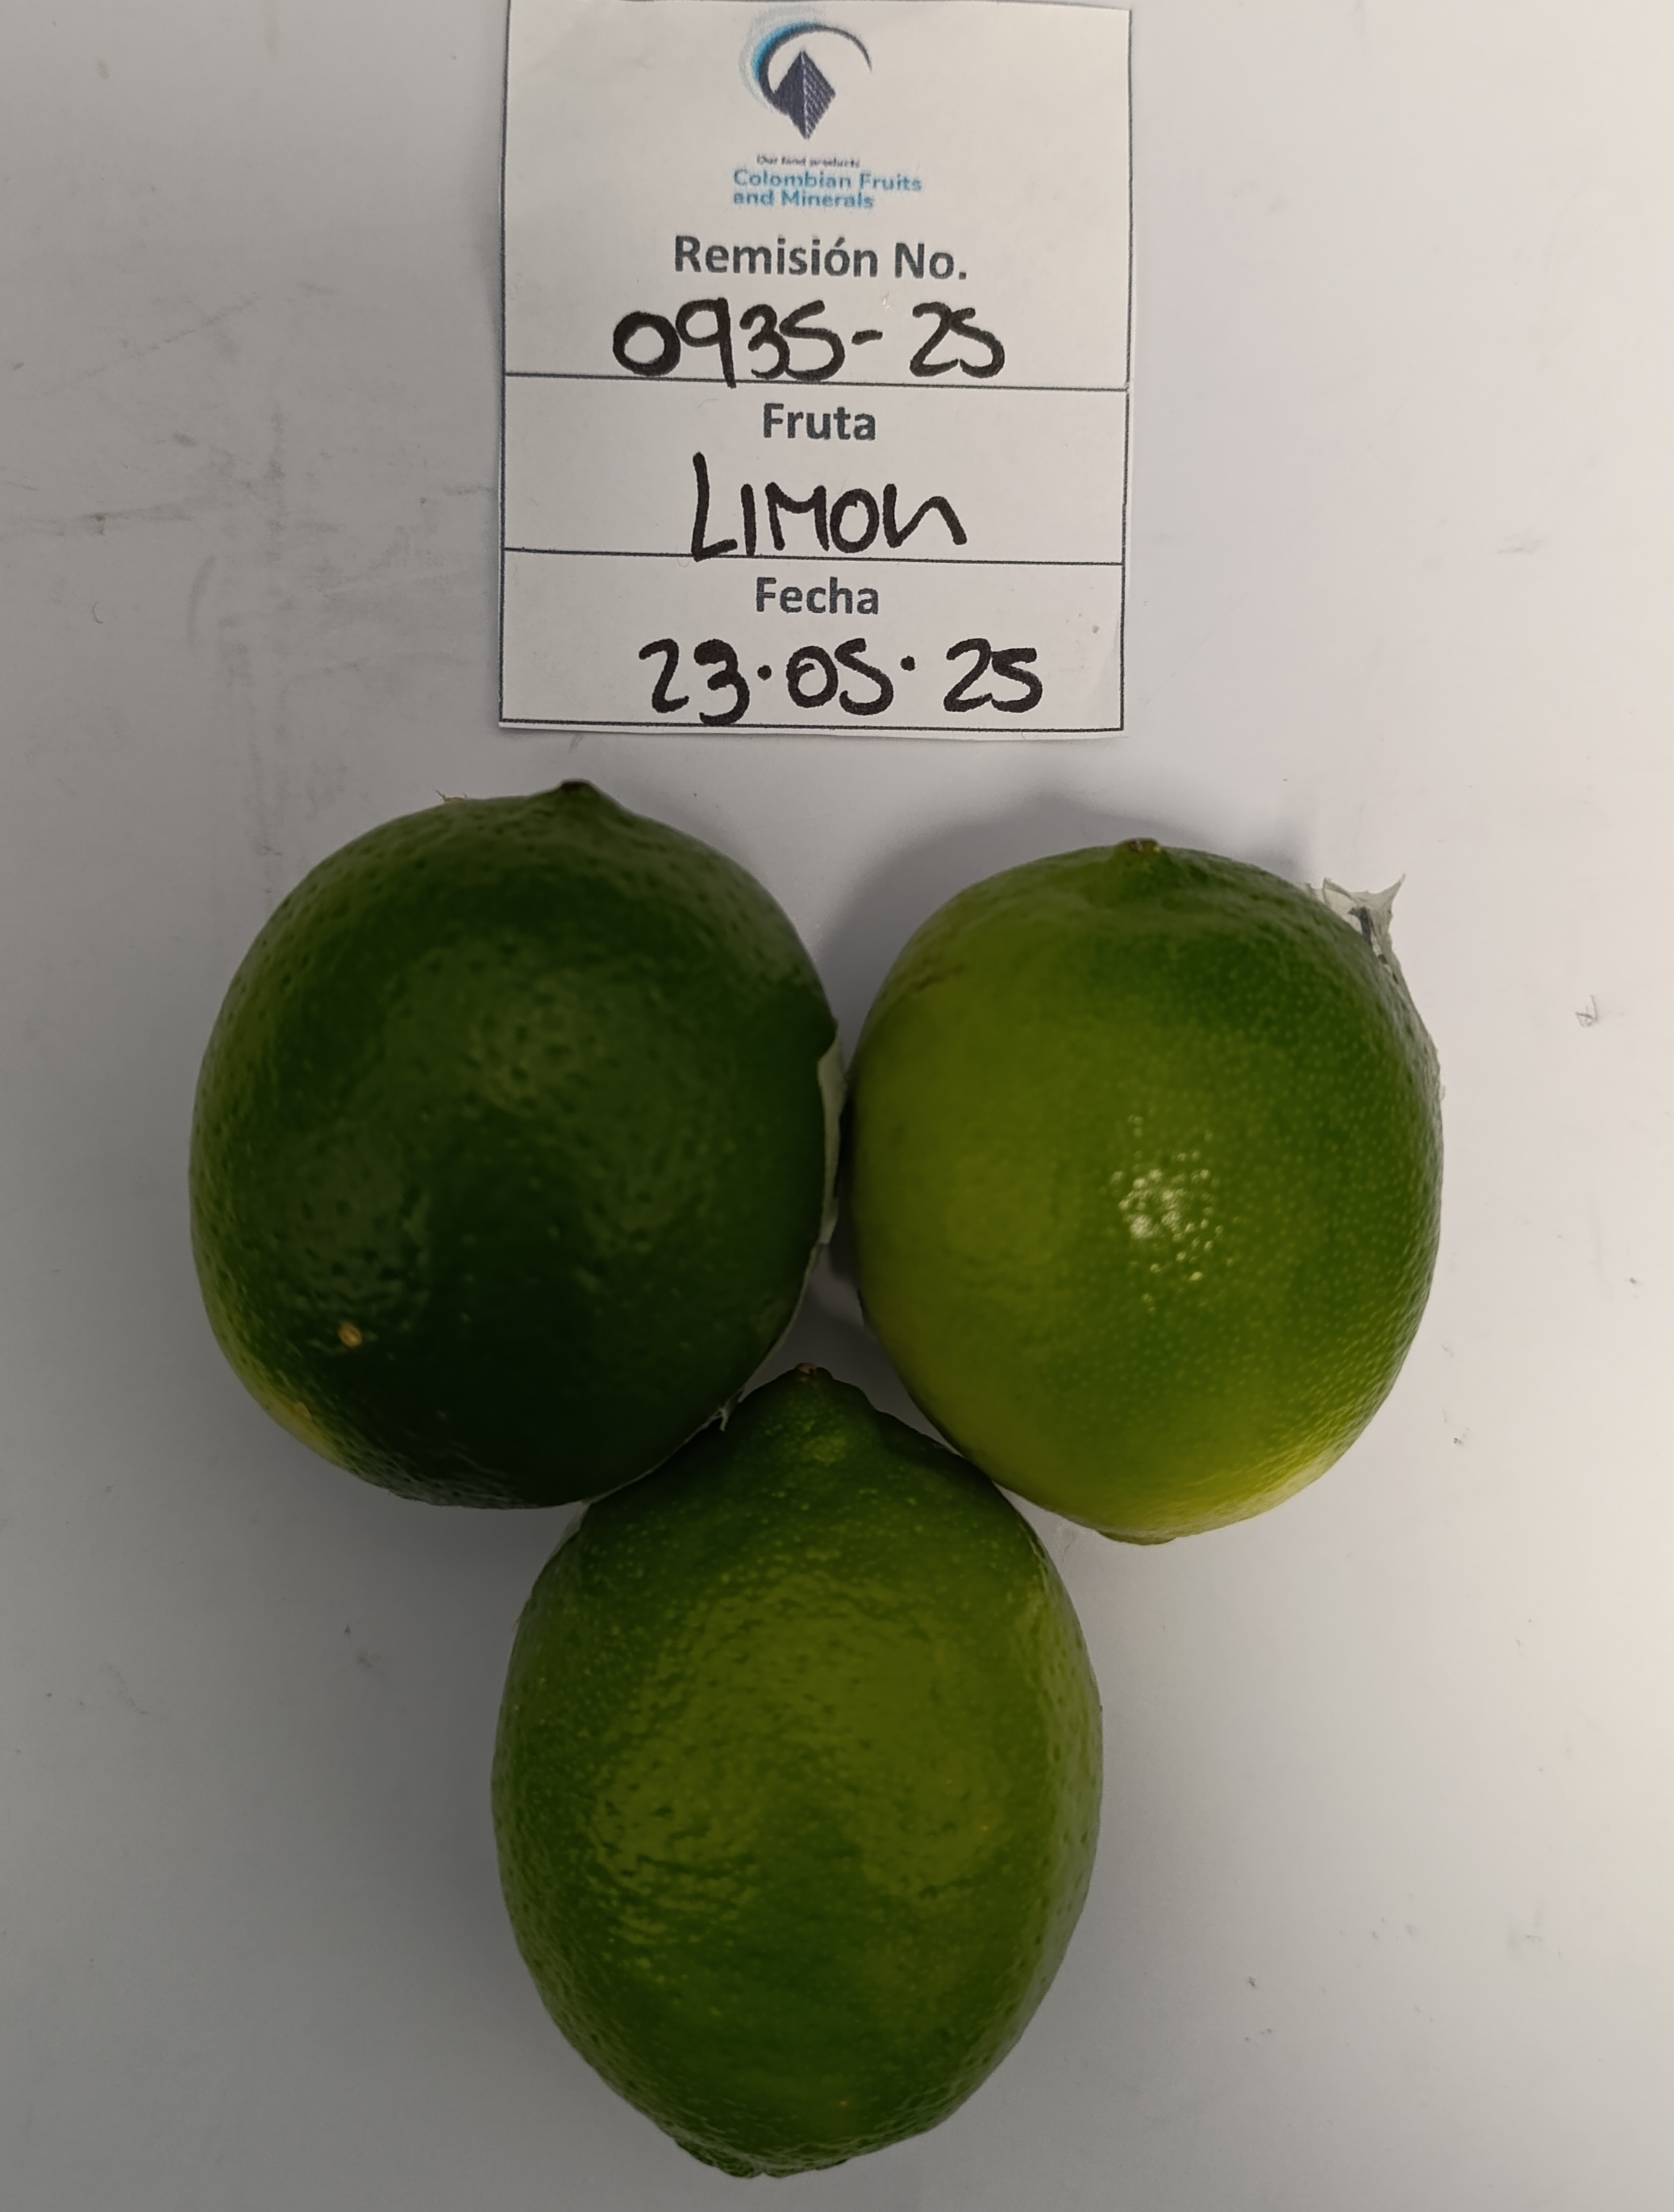 Our food products
Colombian Fruits
and Minerals
Remisión No.
0935-25
Fruta
LIMON
Fecha
23.05.25